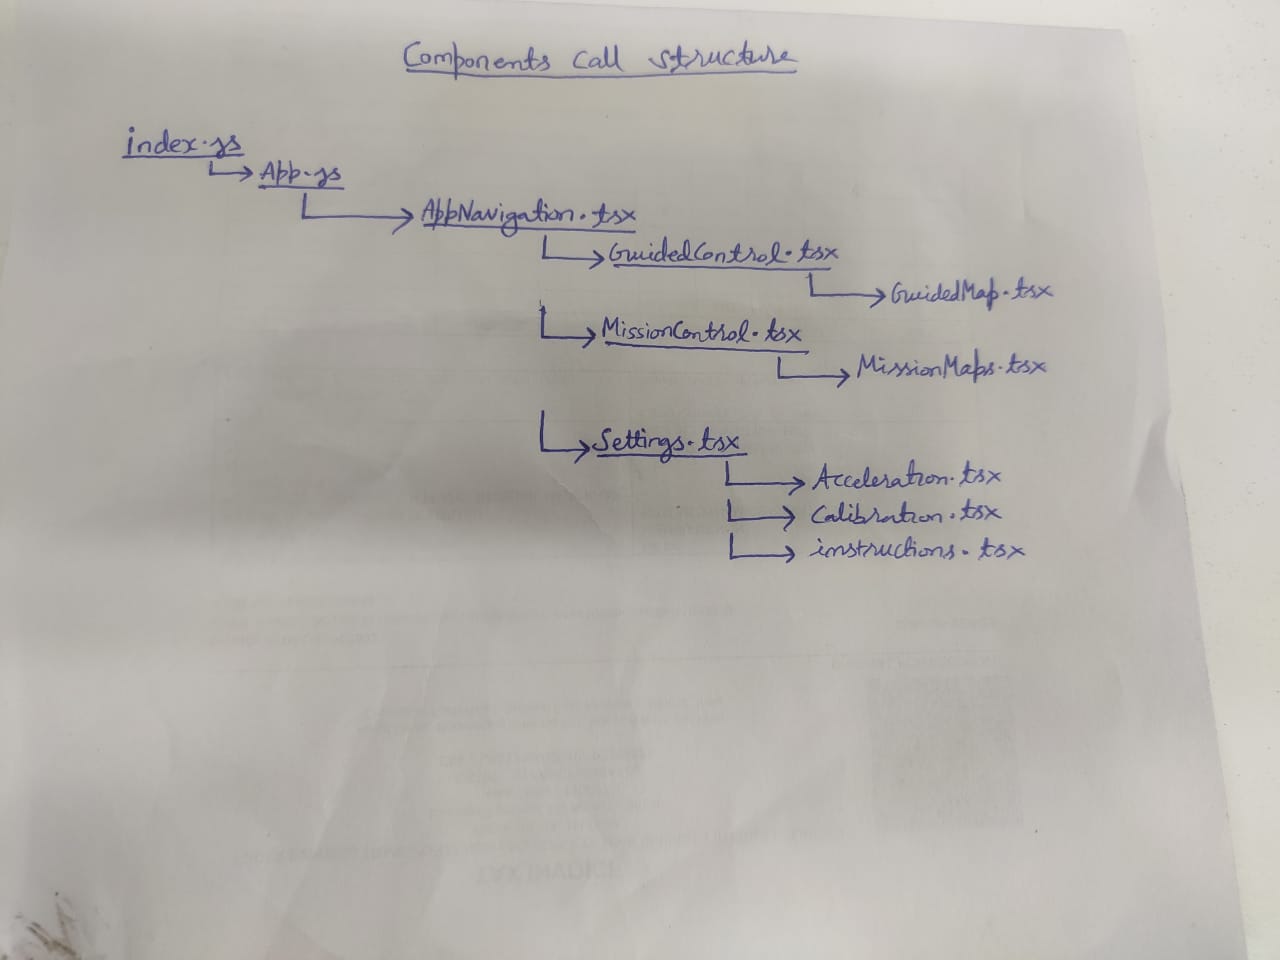 Components call structure
index.js
App.js
AppNavigation.tsx
GuidedControl.tsx
GuidedMap.tsx
MissionControl.tsx
MissionMaps.tsx
Settings.tsx
Acceleration.tsx
Calibration.tsx
instructions.tsx